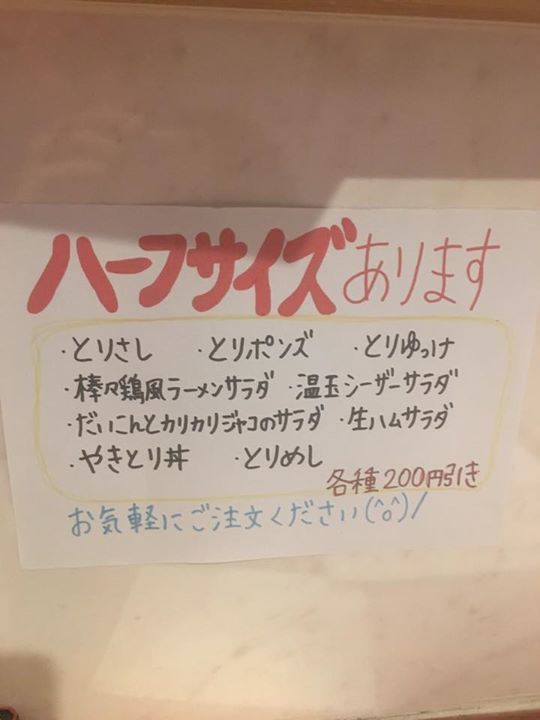 ハーフサイズあります
・とりさし ・とりポンズ ・とりゆっけ
・棒々鶏風ラーメンサラダ ・温玉シーザーサラダ
・だいこんとカリカリジャコのサラダ ・生ハムサラダ
・やきとり丼 ・とりめし
各種200円引き
お気軽にご注文ください(^o^)/